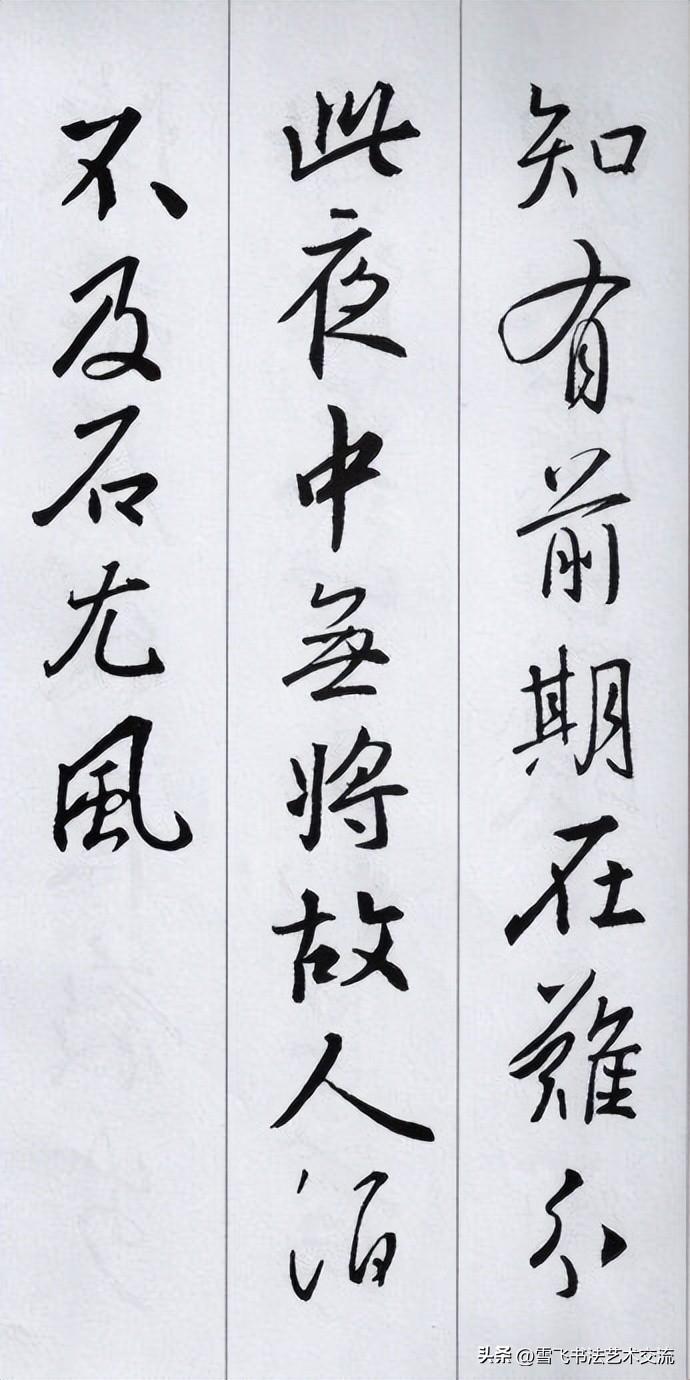 知有前期在難分
此夜中無將故人酒
不及石尤風
头条 @雪飞书法艺术交流